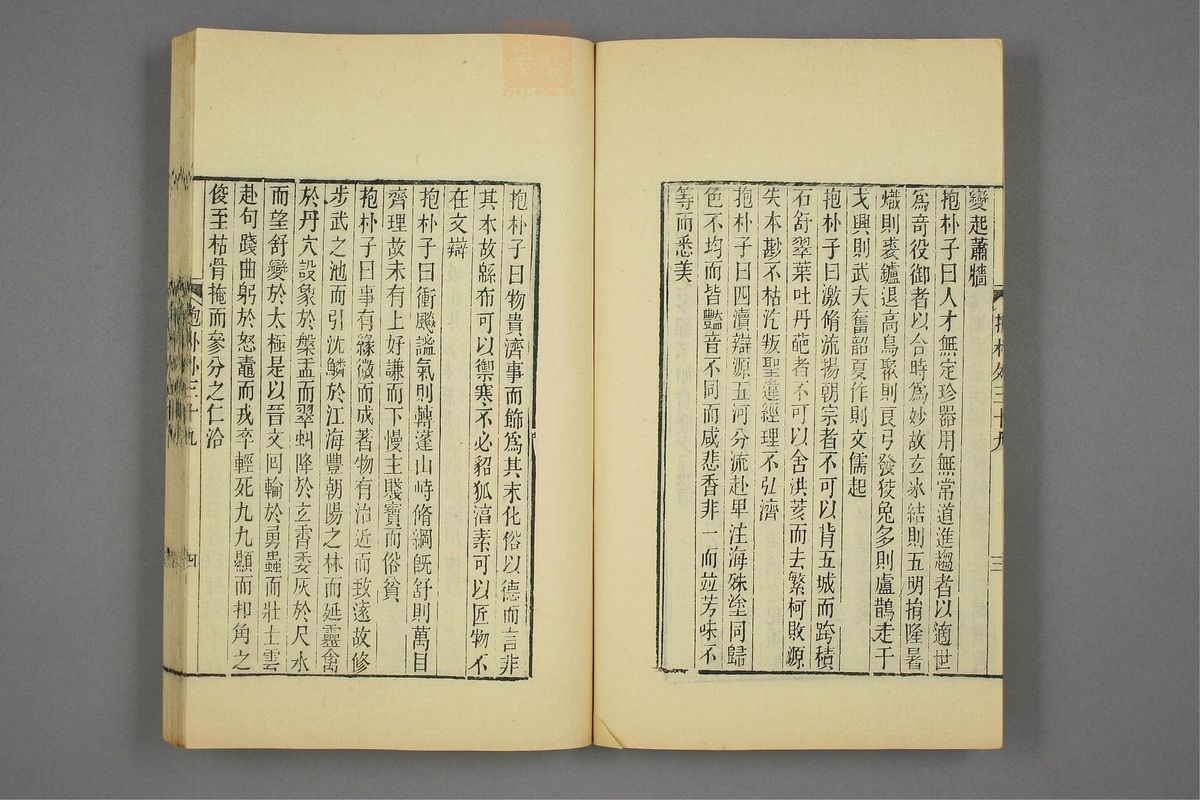 變起蕭牆
抱朴子曰人才無定珍器用無常道進趨者以適世
爲奇役御者以合時爲妙故玄冰結則五明捐隆暑
熾則裘鑪退高鳥聚則良弓發狡兔多則盧鵲走干
戈興則武夫奮韶夏作則文儒起
抱朴子曰激脩流揚朝宗者不可以背五城而跨積
石舒翠葉吐丹葩者不可以舍洪荄而去繁柯敗源
失本尠不枯汔叛聖違經理不弘濟
抱朴子曰四瀆辯源五河分流赴卑注海殊塗同歸
色不均而皆豔音不同而咸悲香非一而竝芳味不
等而悉美
抱朴外三十九
三
抱朴子曰物貴濟事而飾爲其末化俗以德而言非
其本故緜布可以禦寒不必貂狐淳素可以匠物不
在文辯
抱朴子曰衝飈謐氣則轉蓬山峙脩綱既舒則萬目
齊理故未有上好謙而下慢主賤寶而俗貧
抱朴子曰事有緣微而成著物有治近而致遠故修
步武之池而引沈鱗於江海豐朝陽之林而延靈禽
於丹穴設象於槃盂而翠虯降於玄霄委灰於尺水
而望舒變於太極是以晉文回輪於勇蟲而壯士雲
赴句踐曲躬於怒鼃而戎卒輕死九九顯而扣角之
俊至枯骨掩而參分之仁洽
抱朴外三十九
四